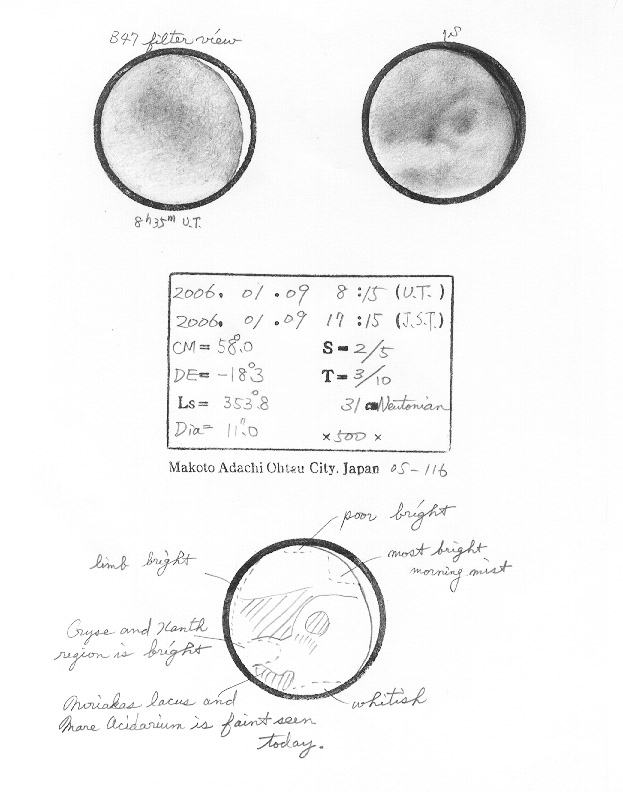 B47 filter view
8ʰ35ᵐ U.T.
2006. 01 .09 8 :15 (U.T.)
2006. 01 .09 17 :15 (J.S.T.)
CM= 58.°0 S = 2/5
DE= -18.°3 T = 3/10
Ls= 353.°8 31 cm Neutonian
Dia= 11.″0 ×500 ×
Makoto Adachi Ohtsu City. Japan 05-116
poor bright
limb bright
most bright
morning mist
Cryse and Xanth
region is bright
whitish
lacus and
Mare Acidarium is faint seen
today.